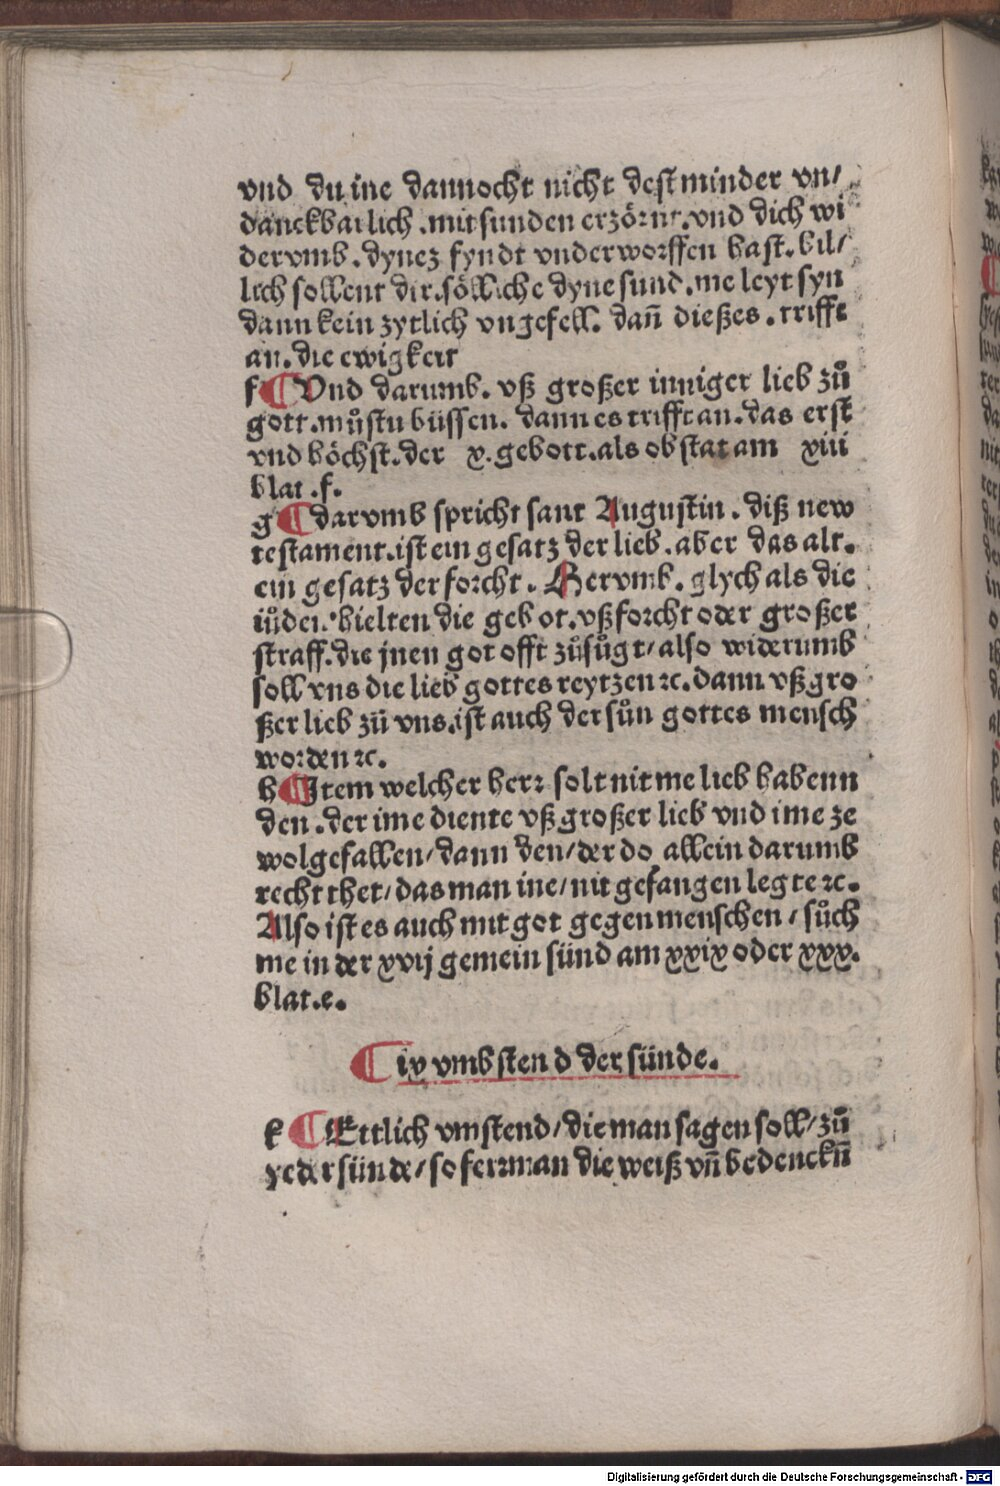 vnd du ine dannocht nicht dest minder vn/
danckbarlich .mit sunden erzörnt.vnd dich wi
dervmb .dynez fyndt vnderworffen hast.bil/
lich sollent dir.sölliche dyne sund.me leyt syn
dann kein zytlich vngefell. dan̄ dießes .trifft
an.die ewigkeit
f ¶ Vnd darumb. vß großer inniger lieb zů
gott.můstu büssen. dann es trifft an.das erst
vnd höchst.der x.gebott.als ob stat am xiii
blat .f.
g ¶ darvmb spricht sant Augustin . diß new
testament.ist ein gesatz der lieb.aber das alt.
ein gesatz der forcht . Hervmb. glych als die
iůden hielten die gebot.vß forcht oder großer
straff.die jnen got offt zůfůgt/ also widerumb
soll vns die lieb gottes reytzen ⁊c.dann vß gro
ßer lieb zů vns.ist auch der sůn gottes mensch
worden ⁊c.
h ¶ Item welcher herr solt nit me lieb habenn
den .der ime diente vß großer lieb vnd ime ze
wolgefallen/ dann den/ der do allein darumb
recht thet/ das man ine/ nit gefangen legte ⁊c.
Also ist es auch mit got gegen menschen / sůch
me in der xvij gemein sünd am xxix oder xxx.
blat.e.
¶ ix vmbstend der sünde.
k ¶ Ettlich vmstend/ die man sagen soll/ zů
yeder sünde/ so ferr man die weiß vn̄ bedenckn̄
Digitalisierung gefördert durch die Deutsche Forschungsgemeinschaft - DFG